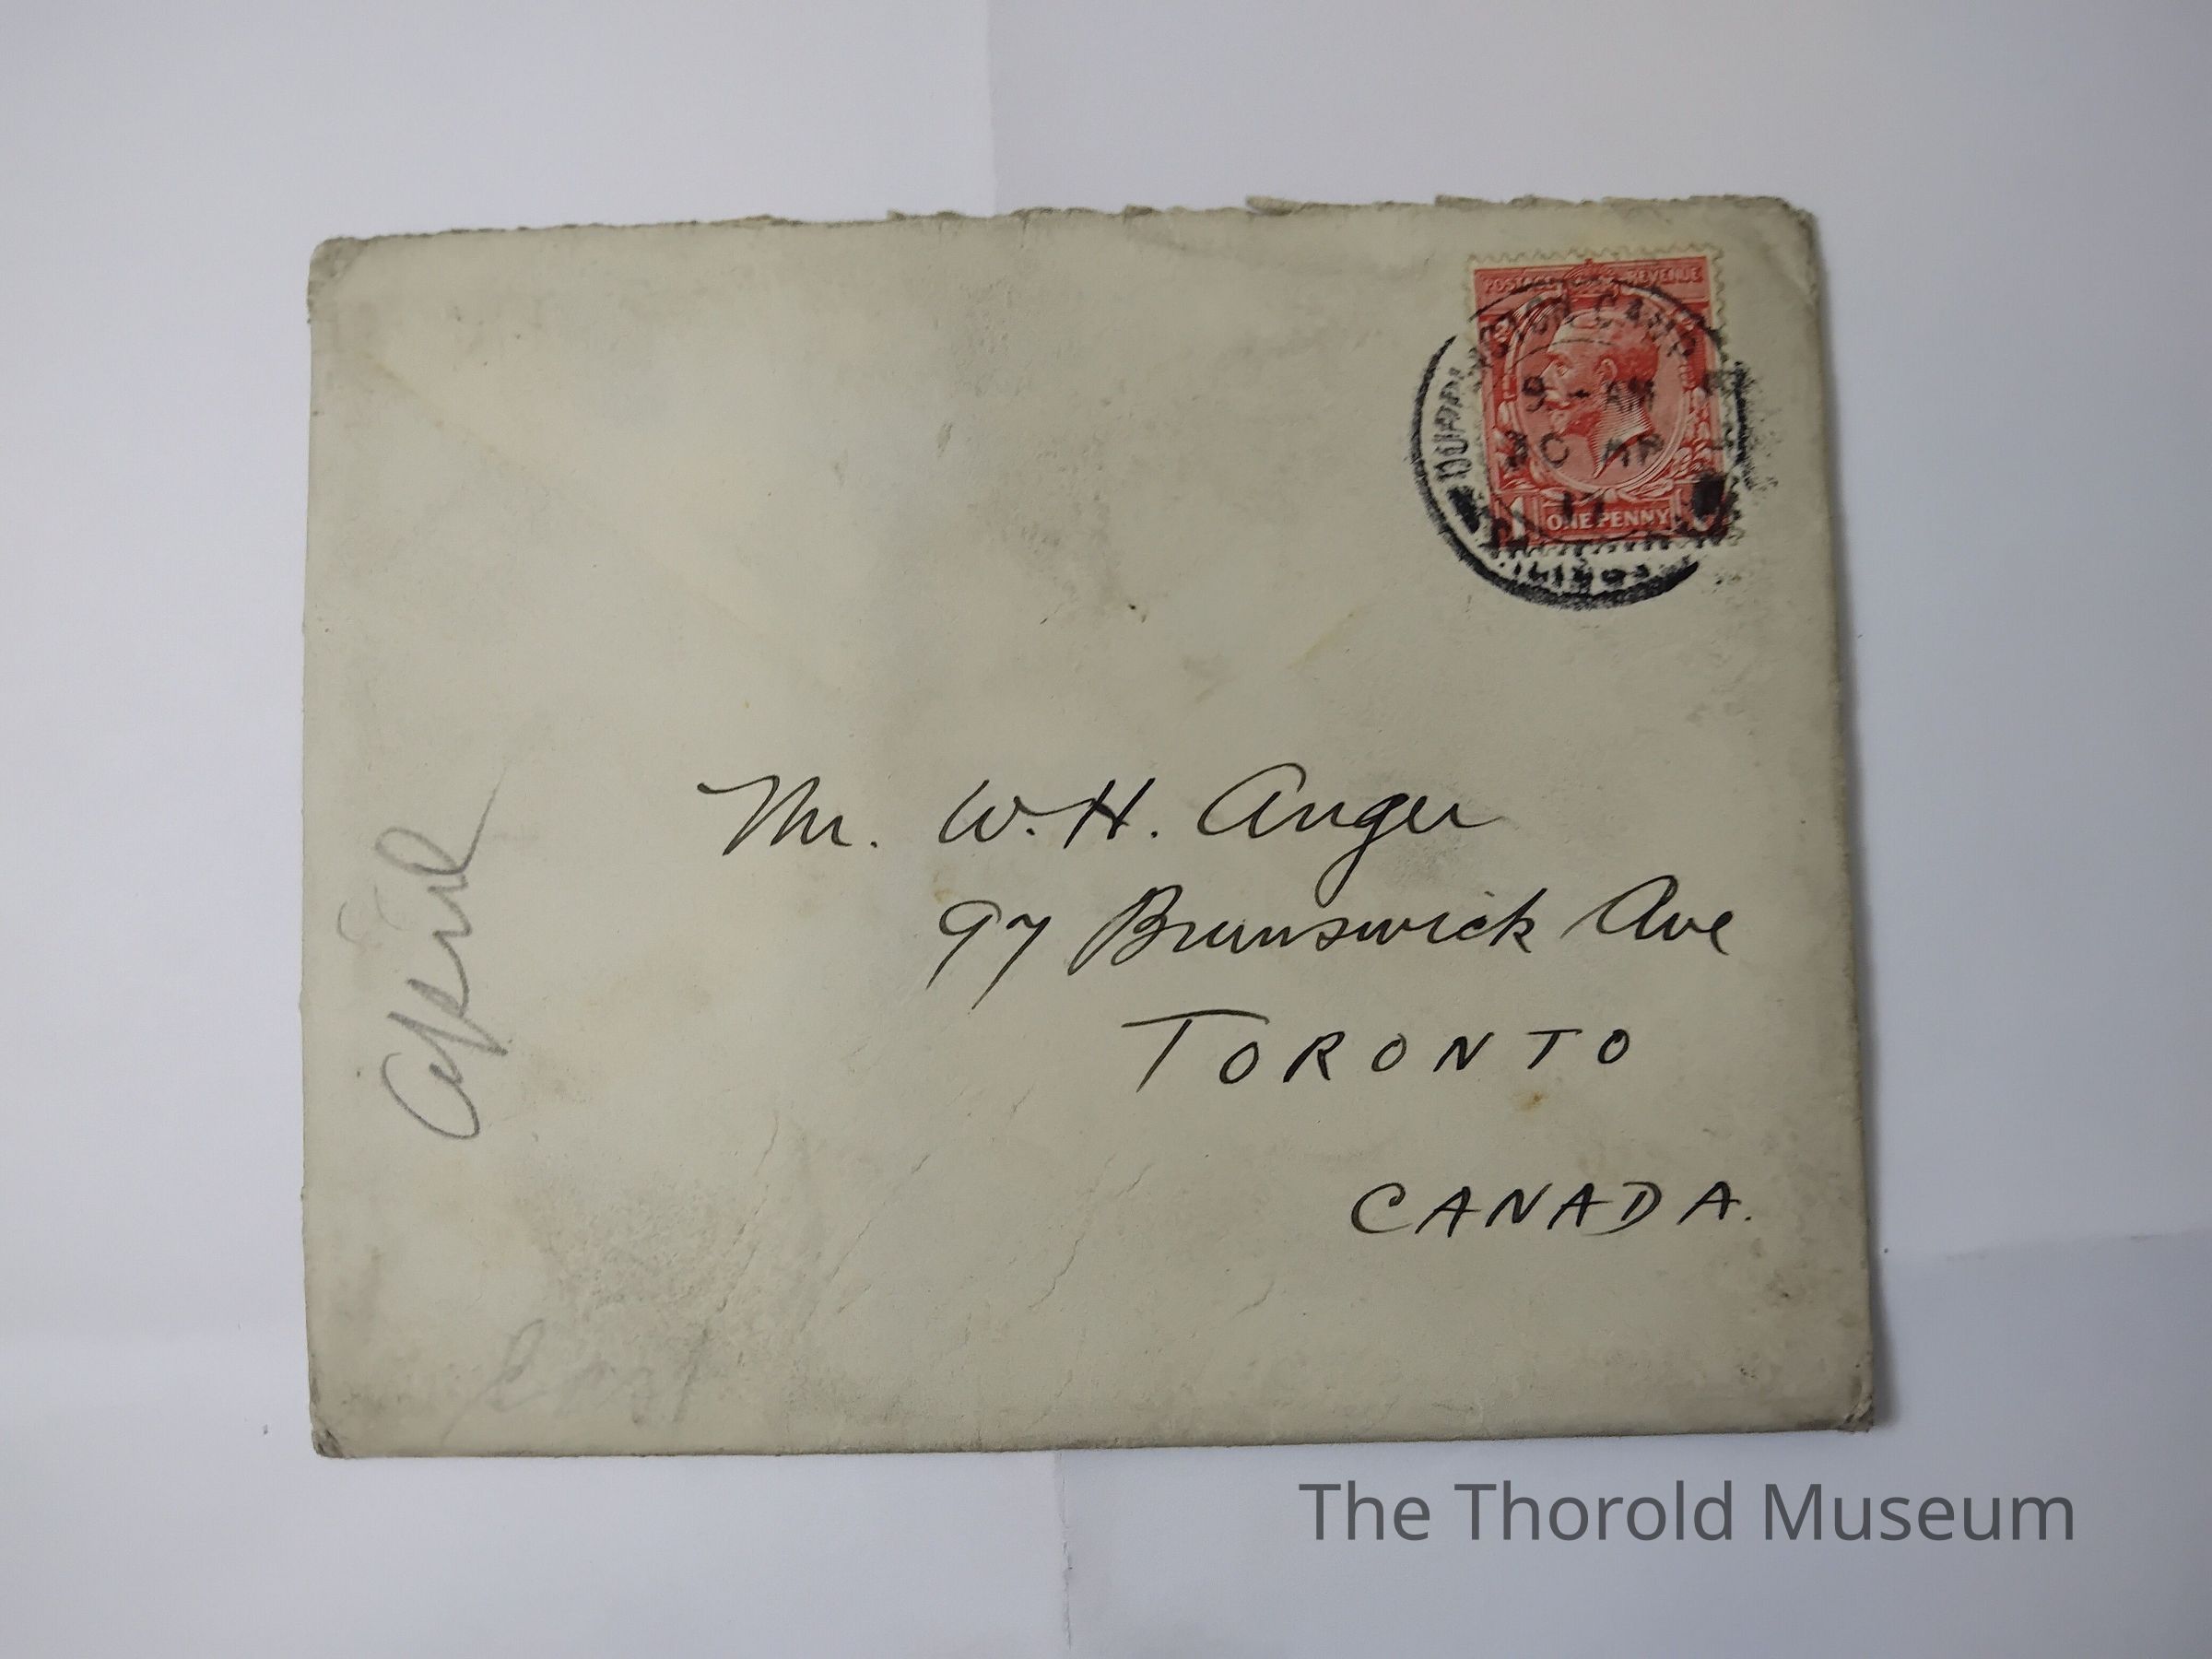 POSTAGE REVENUE
CAMP
9 AM
AP
17
1 ONE PENNY
Mr. W. H. Anger
97 Brunswick Ave
TORONTO
CANADA.
April
The Thorold Museum